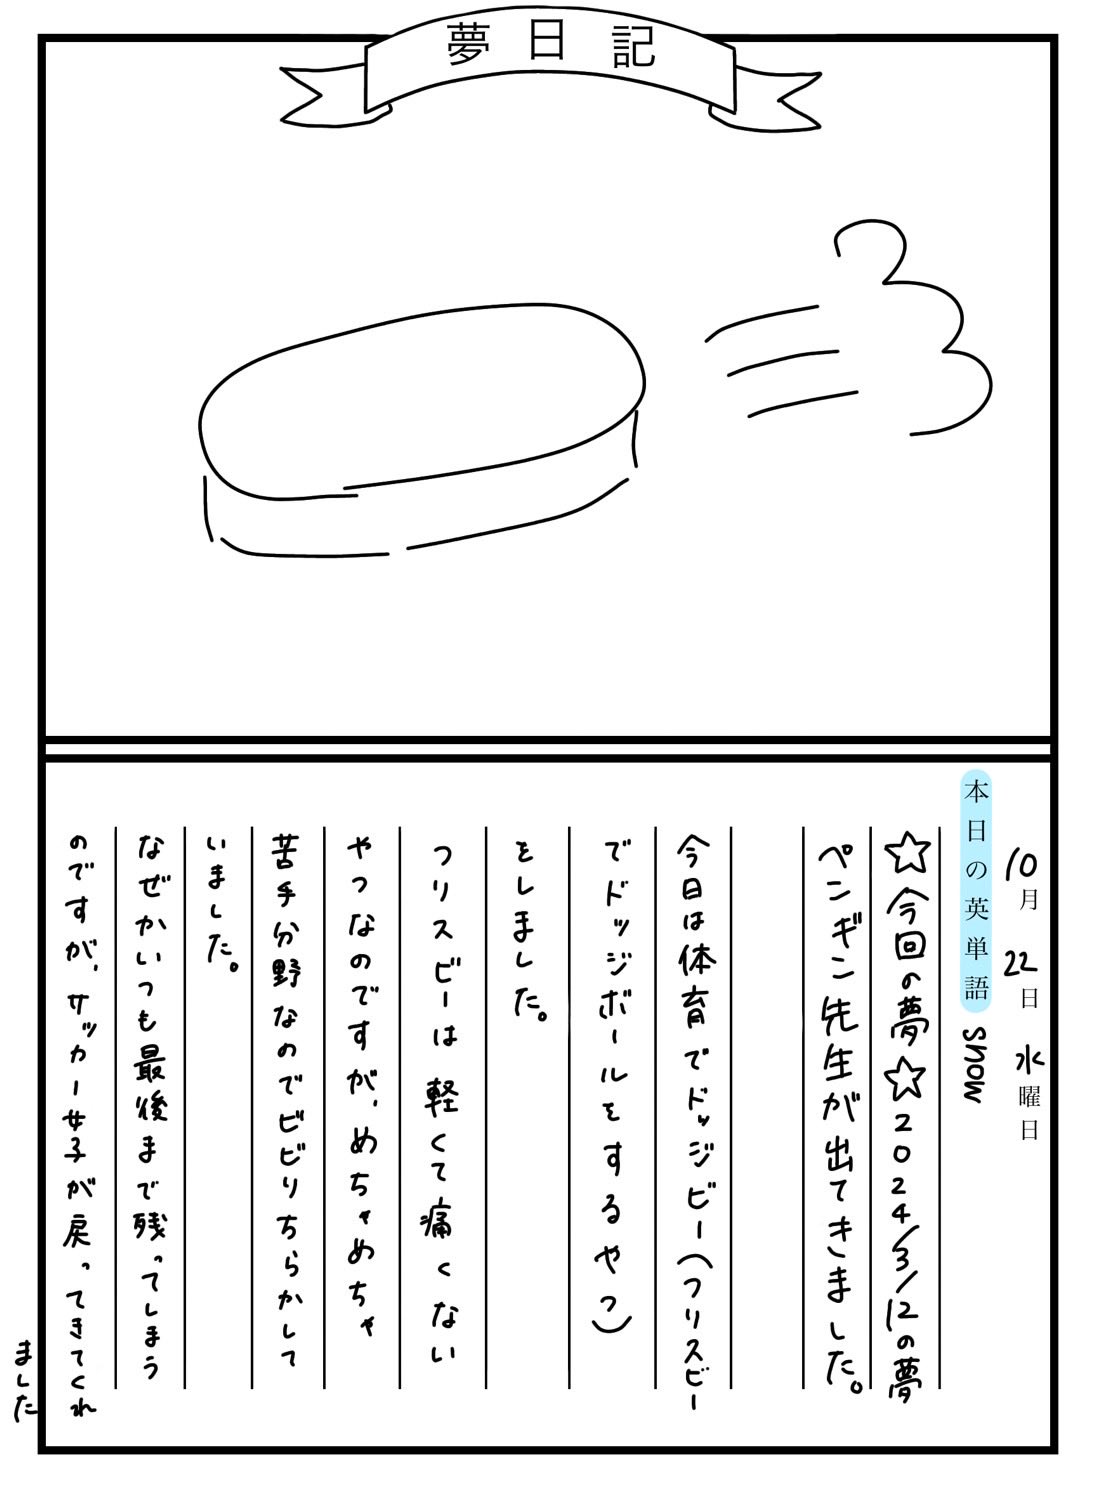 夢日記
10月 22日 水曜日
本日の英単語 snow
☆今回の夢☆2024/3/12の夢
ペンギン先生が出てきました。
今日は体育でドッジビー(フリスビー
でドッジボールをするやつ)
をしました。
フリスビーは軽くて痛くない
やつなのですが、めちゃめちゃ
苦手分野なのでビビりちらかして
いました。
なぜかいつも最後まで残ってしまう
のですが、サッカー女子が戻ってきてくれ
ました